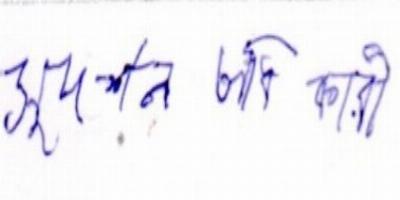 সুদর্শন অধিকারী